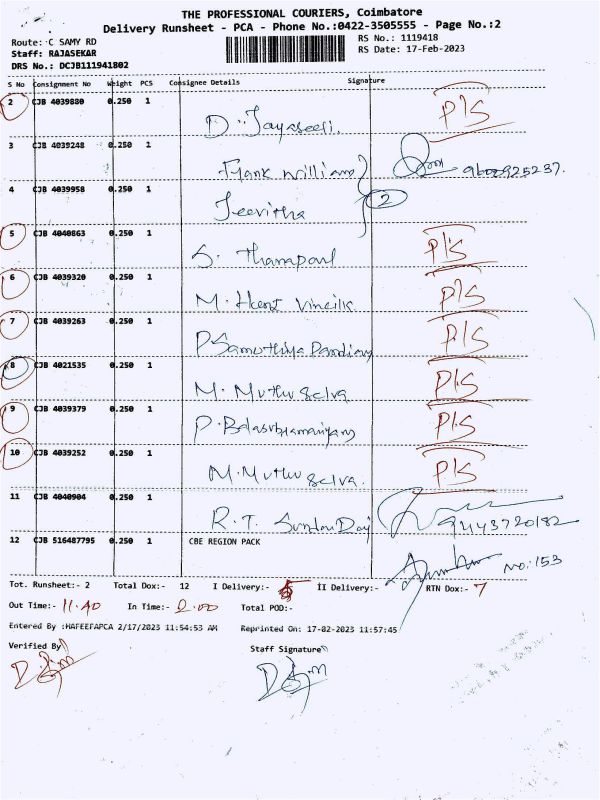 THE PROFESSIONAL COURIERS, Coimbatore
Delivery Runsheet - PCA - Phone No.:0422-3505555 - Page No.:2
Route: C SAMY RD RS No.: 1119418
Staff: RAJASEKAR RS Date: 17-Feb-2023
DRS No.: DCJB111941802
S No Consignment No Weight PCS Consignee Details Signature
2 CJB 4039880 0.250 1 D. Jayaseeli. P/S
3 CJB 4039248 0.250 1 Frank William
4 CJB 4039958 0.250 1 Jeevitha 2
5 CJB 4040863 0.250 1 S. P/S
6 CJB 4039320 0.250 1 M. P/S
7 CJB 4039263 0.250 1 P Samuthiya Pandiary P/S
8 CJB 4021535 0.250 1 M. Muthu Selva P/S
9 CJB 4039379 0.250 1 P. P/S
10 CJB 4039252 0.250 1 M. Muthu Selva. P/S
11 CJB 4040904 0.250 1 R. T. 9443720182
12 CJB 516487795 0.250 1 CBE REGION PACK
NO: 153
Tot. Runsheet:- 2 Total Dox:- 12 I Delivery:- 5 II Delivery:- RTN Dox:- 7
Out Time:- 11.40 In Time:- 2.00 Total POD:-
Entered By :HAFEEFAPCA 2/17/2023 11:54:53 AM Reprinted On: 17-02-2023 11:57:45
Verified By Staff Signature